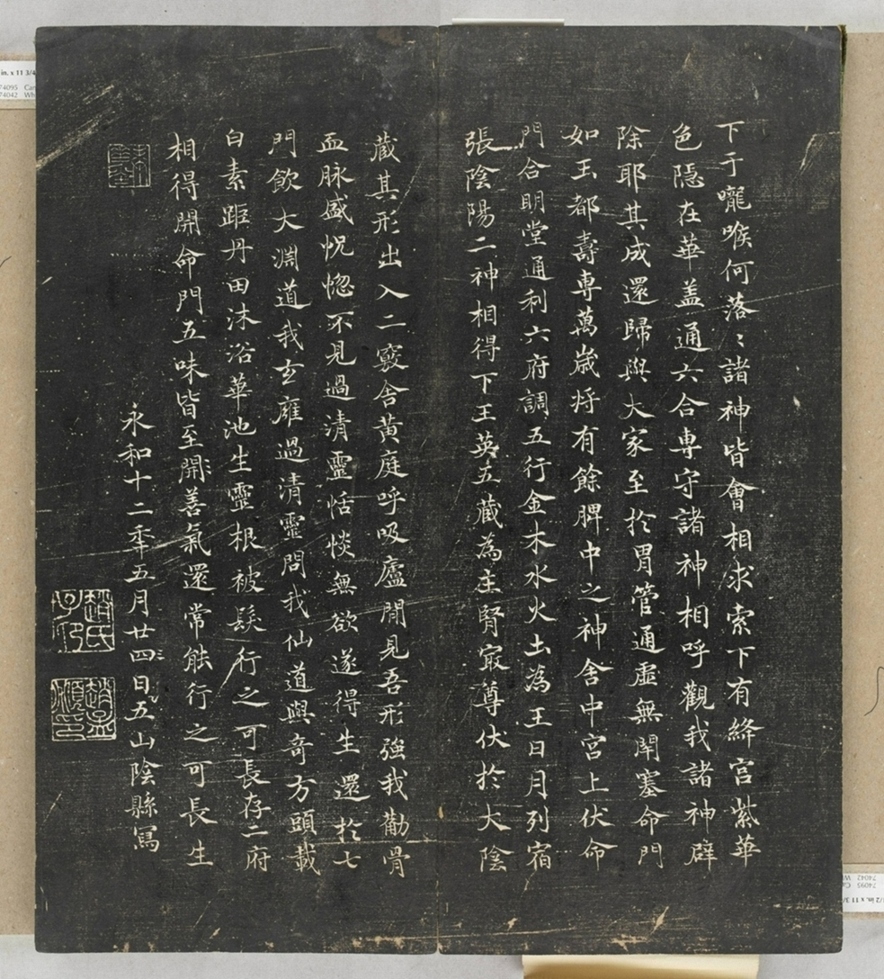 下于嚨喉何落〻諸神皆會相求索下有絳宫紫華
色隠在華盖通六合専守諸神相呼觀我諸神辟
除耶其成還歸與大家至於胃管通虚無閉塞命門
如玉都壽専萬歳将有餘脾中之神舍中宫上伏命
門合明堂通利六府調五行金木水火土為王日月列宿
張陰陽二神相得下玉英五藏為主腎寂尊伏於大陰
藏其形出入二竅舍黄庭呼吸廬間見吾形強我萠骨
血脉盛怳惚不見過清靈恬惔無欲遂得生還於七
門飲大淵道我玄廱過清靈問我仙道與奇方頭載
白素距丹田沐浴華池生靈根被髮行之可長存二府
相得開命門五味皆至開善氣還常能行之可長生
永和十二年五月廿四日五山陰縣寫
趙氏子印
趙孟頫印